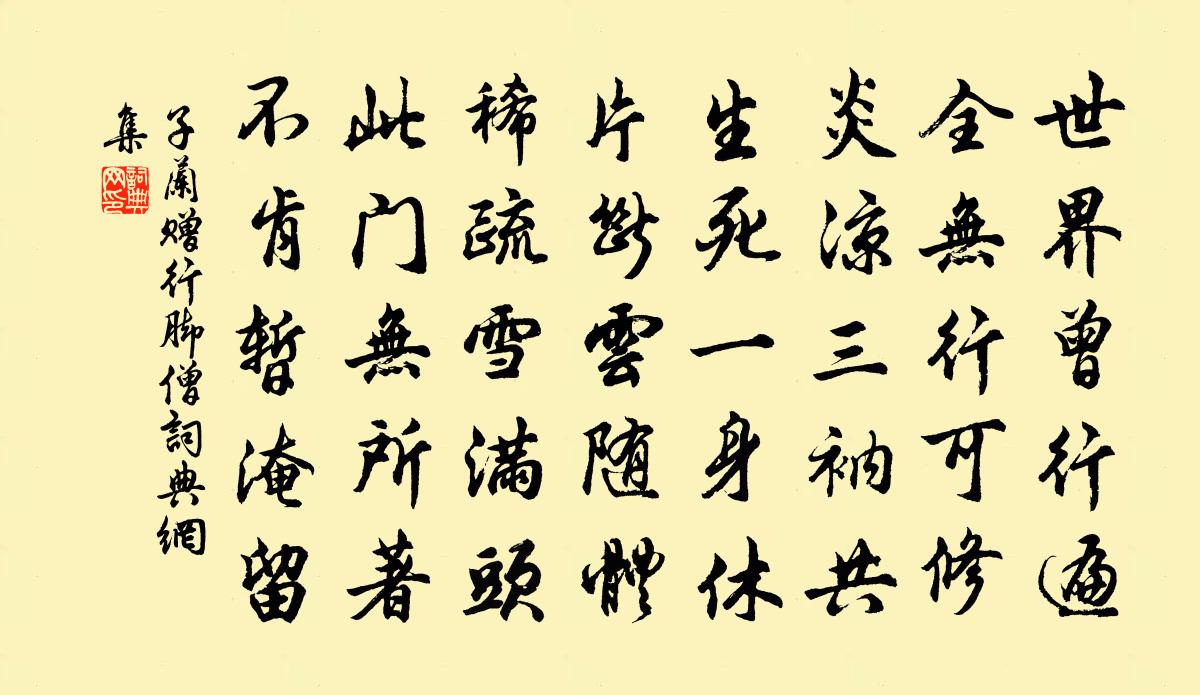 世界曾行遍
全無行可修
炎涼三衲共
生死一身休
片斷雲隨體
稀疏雪滿頭
此門無所著
不肯暫淹留
子蘭贈行脚僧詞典網
集
詞典
网印